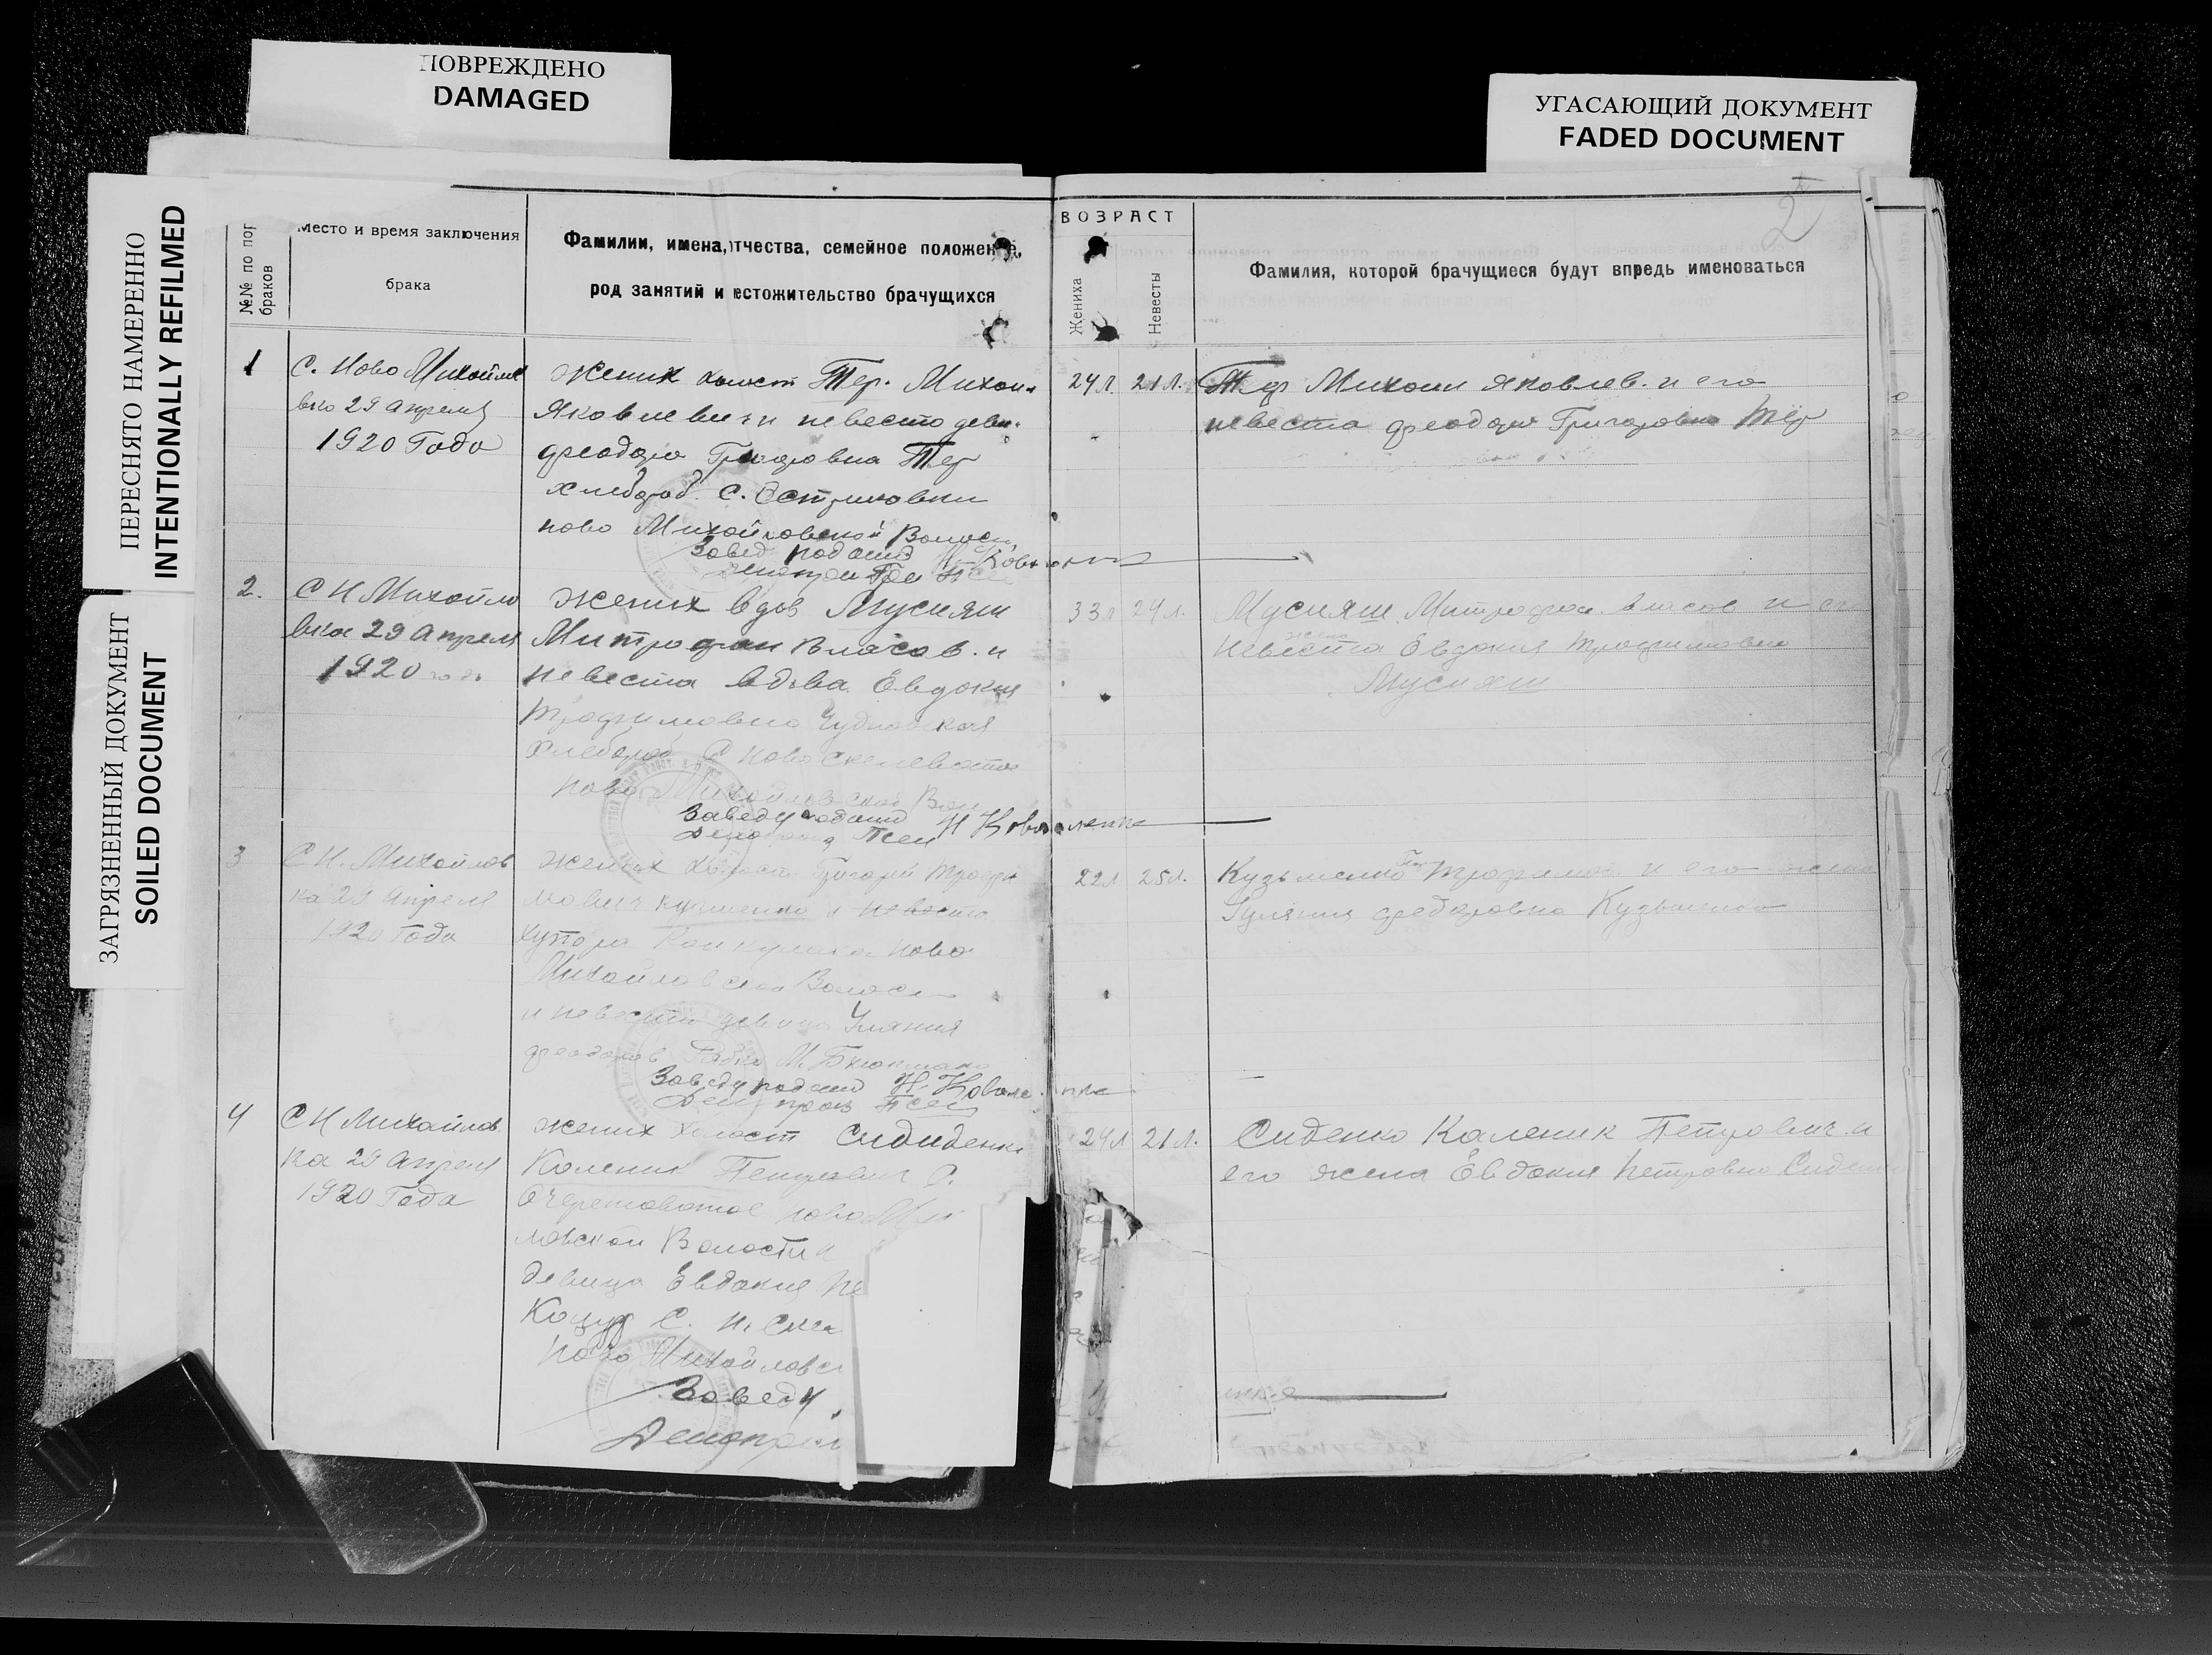 ПОВРЕЖДЕНО
DAMAGED
УГАСАЮЩИЙ ДОКУМЕНТ
FADED DOCUMENT
ПЕРЕСНЯТО НАМЕРЕННО
INTENTIONALLY REFILMED
ЗАГРЯЗНЕННЫЙ ДОКУМЕНТ
SOILED DOCUMENT
2
№№ по пор
браков
Место и время заключения
брака
Фамилии, имена, отчества, семейное положение,
род занятий и местожительство брачущихся
ВОЗРАСТ
Жениха
Невесты
Фамилия, которой брачущиеся будут впредь именоваться
1
С. Ново Михайло
вка 29 апреля
1920 Года
жених холост Тер. Михаи
Яковлевич и невеста деви.
феодора Григоровна Тер
хлебороб. С.
ново Михайловской Волос
Завед
24 л. 21 л.
Тер Михаил Яковлев. и его
невеста феодора Григоровна Тер
2.
С Н Михайло
вка 29 апреля
1920 года
жених вдов Мусияш
Митрофан Власов. и
невеста вдова Евдокия
Трофимовна
хлебороб С Ново
ново Михайловской Вол
Заведу Н Коваленко
33 л 24 л.
Мусияш Митрофан. Власов и ег
невеста жена Евдокия Трофимовна
Мусияш
3
С Н. Михайлов
ка 29 апреля
1920 Года
жених холост Григорий Трофи
мович Кузменко и невеста
хутора ново
Михайловской Волос
и невеста девица Уляния
феодоров
Заведу Н. Ковале нко
22 л 25 л.
Кузьменко Трофимов и его жена
Уляния федоровна Кузьменко
4
С Н Михайлов
ка 29 апреля
1920 Года
жених холост Сидиденко
Каленик Петрович С.
Очеретоватое ново Ми
ловской Волости
девица Евдокия Пе
Коцур С. Н.
ново Михайловс
Заведу
24 л 21 л.
Сиденко Каленик Петрович и
его жена Евдокия Петровна Сиденко